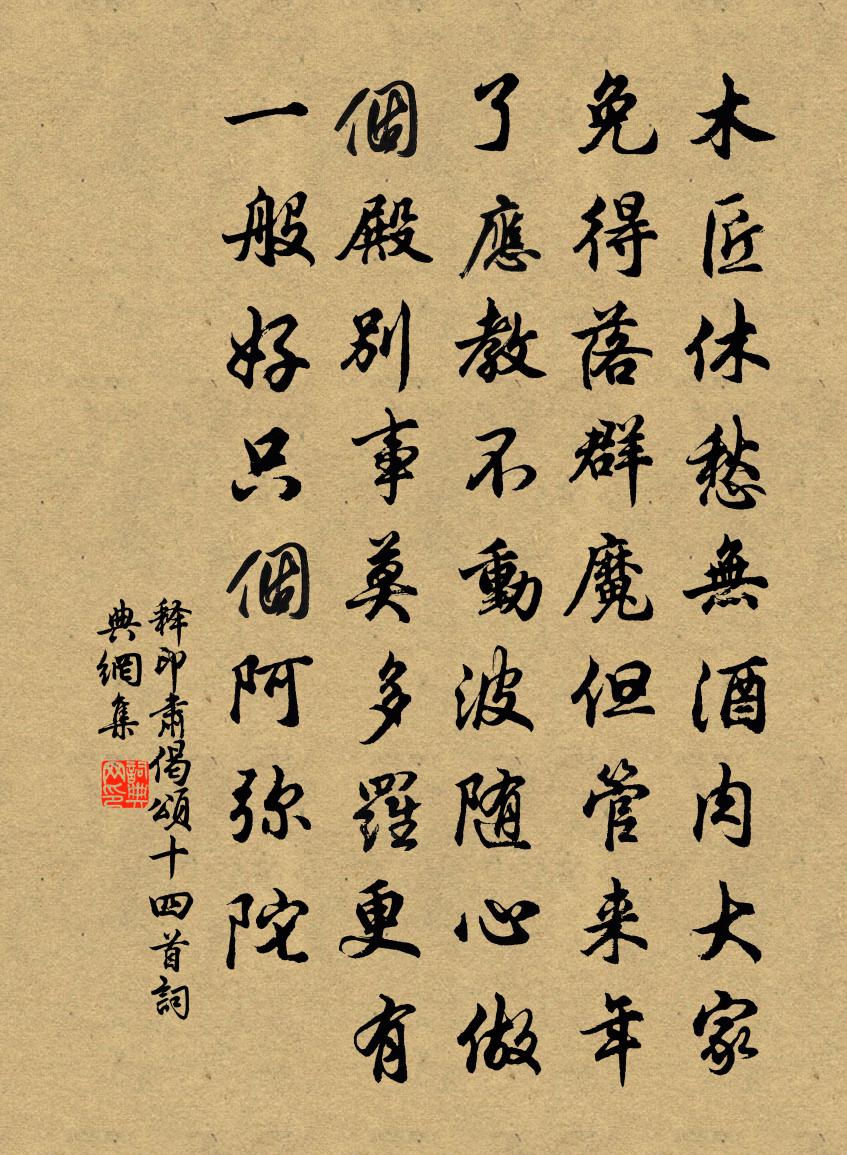 木匠休愁無酒肉大家
免得落群魔但管来年
了應教不動波随心做
個殿別事莫多羅更有
一般好只個阿弥陀
释印肅偈頌十四首詞
典網集
詞典
网印